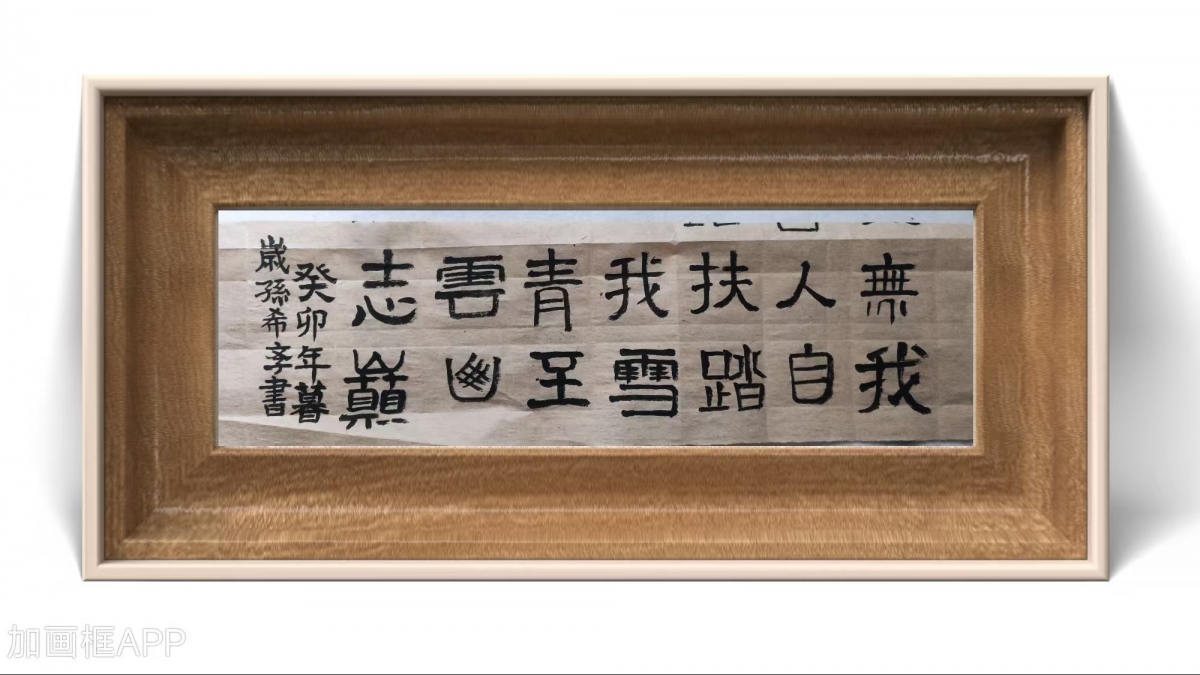 無人扶我青雲志
我自踏雪至山巔
癸卯年暮
歲孫希書
加画框APP